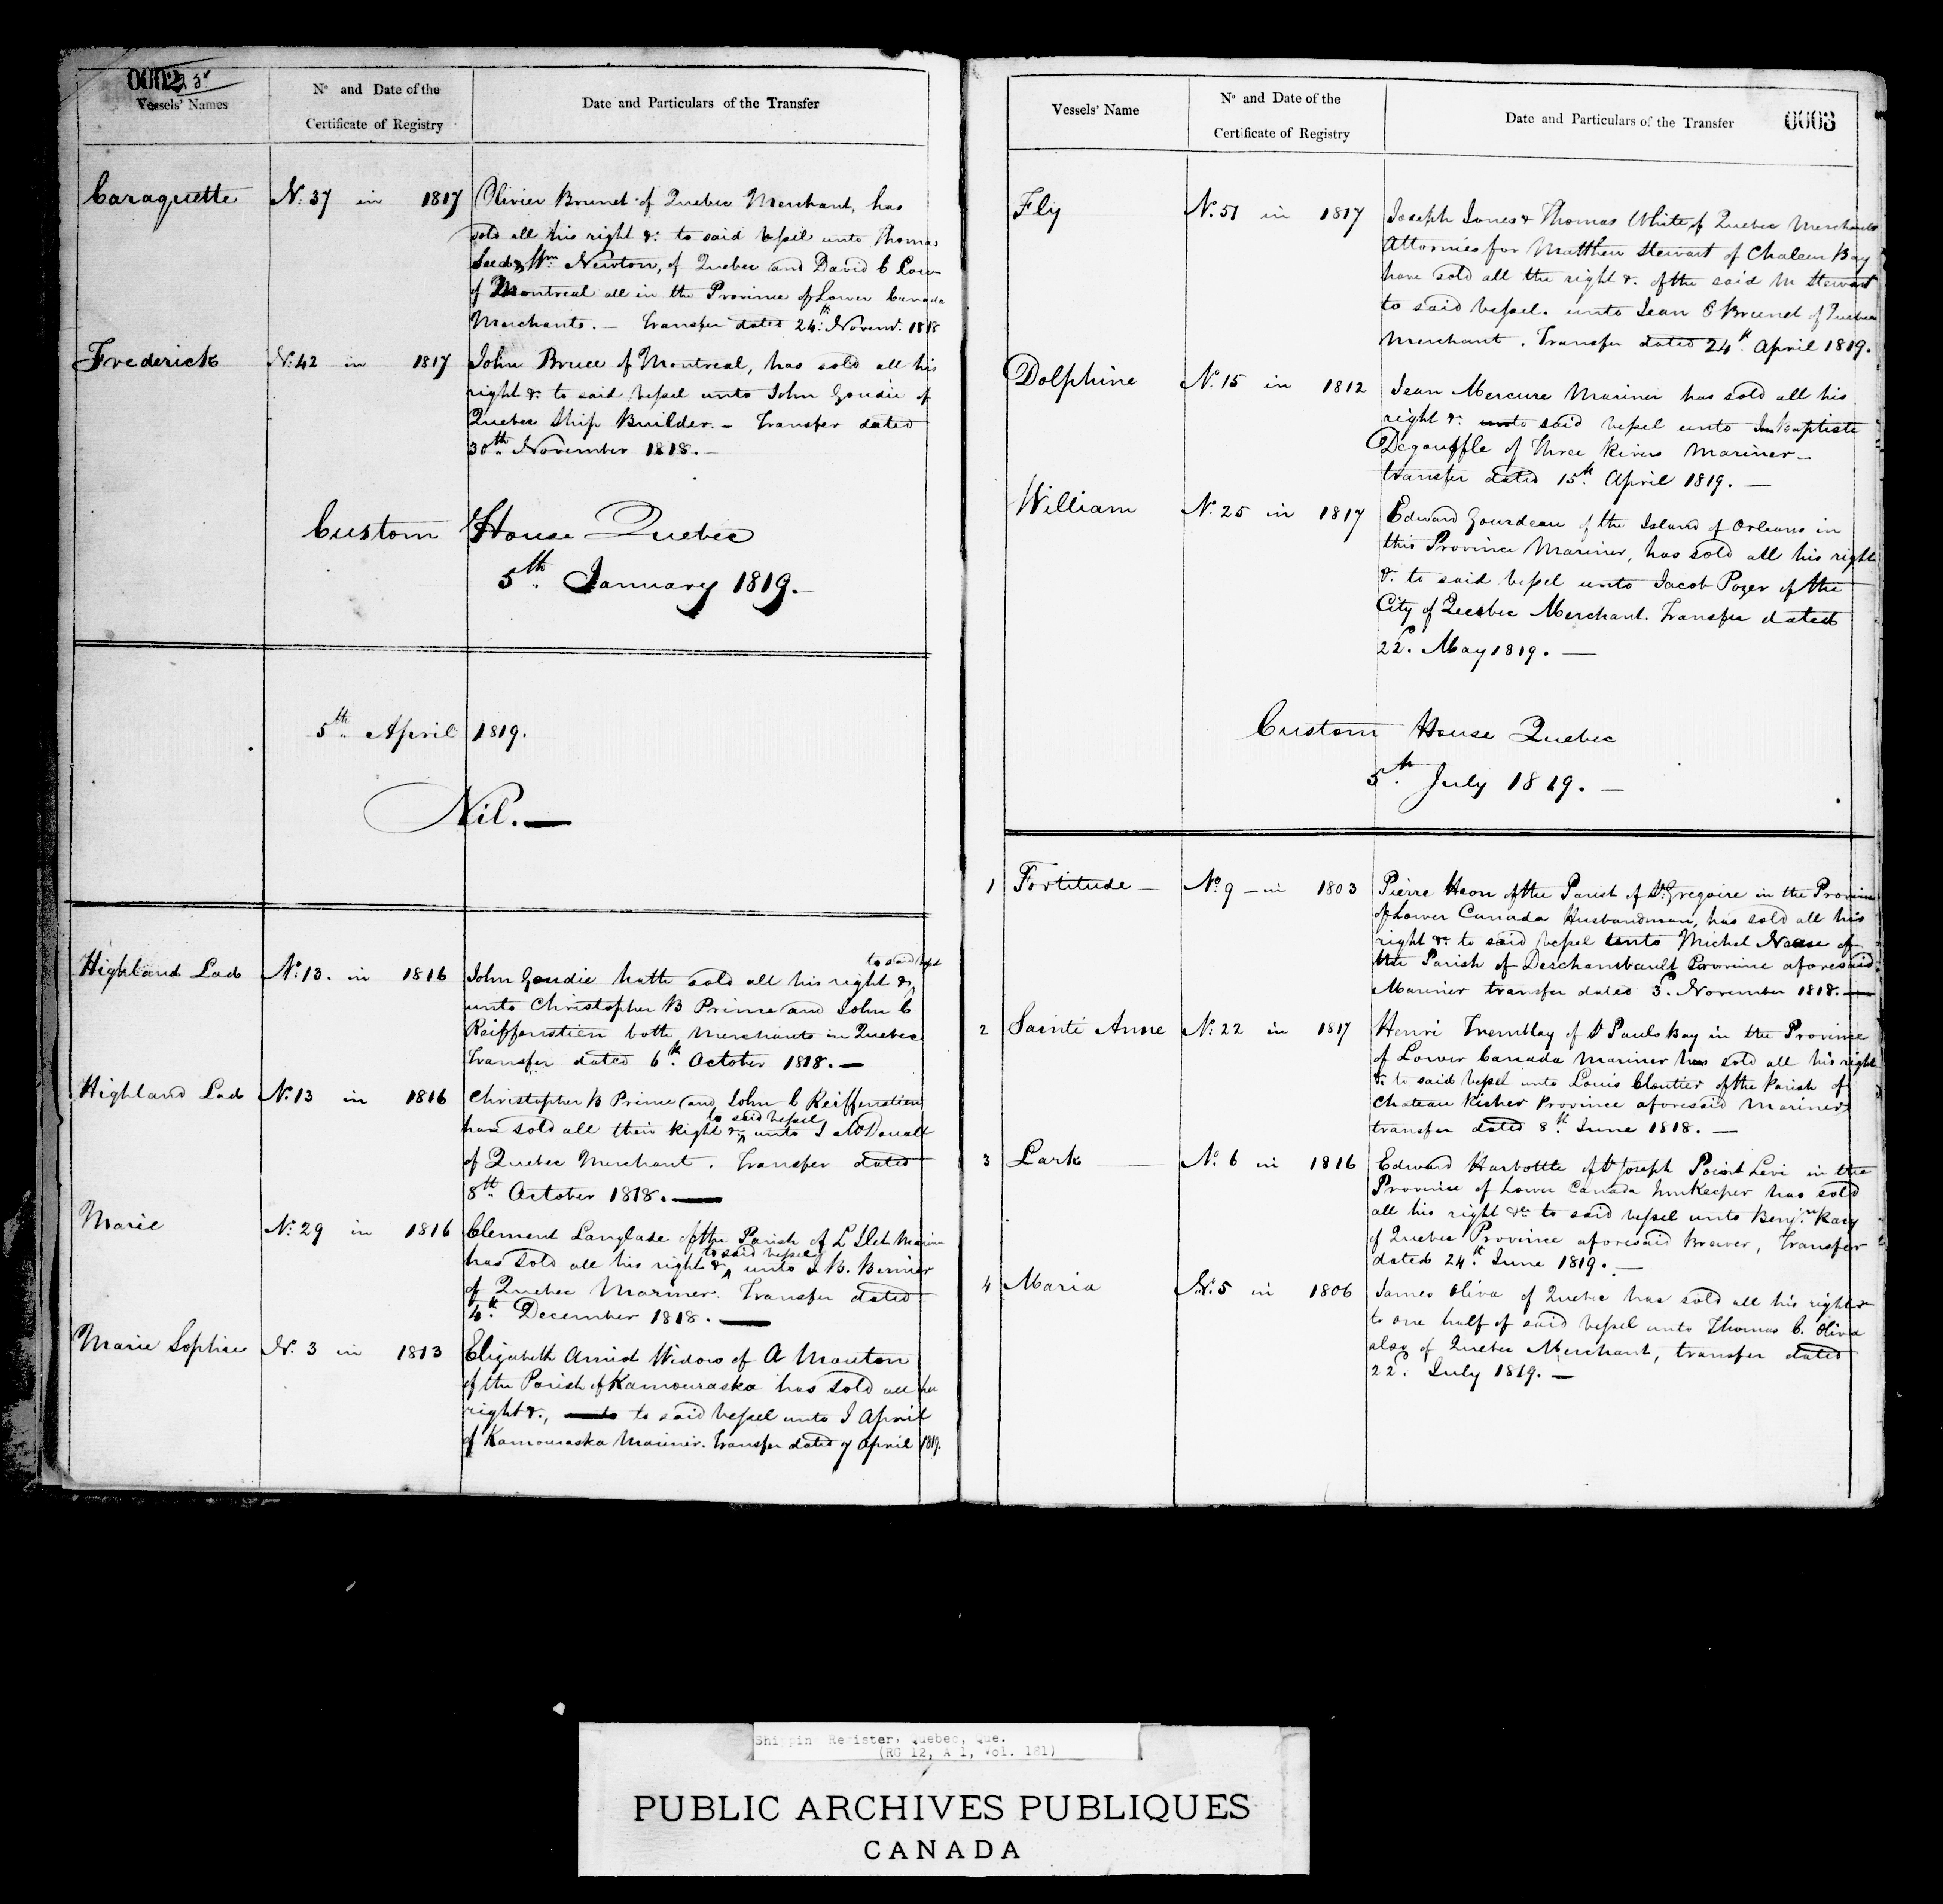 0002
23r
Vessels' Names
No and Date of the
Certificate of Registry
Date and Particulars of the Transfer
Caraquette No. 37 in 1817 Olivier Brunet of Quebec Merchant, has
sold all his right &c to said vessel unto Thomas
Wm Newton, of Quebec and David C
of Montreal all in the Province of Lower Canada
Merchants. — Transfer dated 24th Novemr. 1818
Frederick No. 42 in 1817 John Bruce of Montreal, has sold all his
right &c to said vessel unto John Goudie of
Quebec Ship Builder. — Transfer dated
30th November 1818. —
Custom House Quebec
5th January 1819. —
5th April 1819.
Nil. —
to said vessel
Highland Lad No. 13. in 1816 John Goudie hath sold all his right &c
unto Christopher B Prime and John C
Reiffenstien both Merchants in Quebec
Transfer dated 6th October 1818. —
Highland Lad No. 13 in 1816 Christopher B Prime and John C Reiffenstien
to said vessel
have sold all their Right &c unto J McDouall
of Quebec Merchant. Transfer dated
8th October 1818. —
Marie No. 29 in 1816 Clement Langlade of the Parish of L'Islet
to said vessel
has sold all his right &c unto J. B. Bernier
of Quebec Mariner. Transfer dated
4th December 1818. —
Marie Sophie No. 3 in 1813 Elizabeth Widow of A Mouton
of the Parish of Kamouraska has sold all her
right &c, to said vessel unto J April
of Kamouraska Mariner. Transfer dated 7 April 1819.
Vessels' Name
No and Date of the
Certificate of Registry
Date and Particulars of the Transfer
0003
Fly No. 51 in 1817 Joseph Jones & Thomas White of Quebec Merchants
Attornies for Matthew Stewart of Chaleur Bay
have sold all the right &c. of the said M Stewart
to said vessel. unto Jean O Brunet of Quebec
Merchant. Transfer dated 24th April 1819.
Dolphine No. 15 in 1812 Jean Mercure Mariner has sold all his
right &c to said vessel unto Jean Baptiste
Degouffle of Three Rivers Mariner —
transfer dated 15th April 1819. —
William No. 25 in 1817 Edward Gourdeau of the Island of Orleans in
this Province Mariner, has sold all his right
&c. to said vessel unto Jacob Pozer of the
City of Quebec Merchant. Transfer dated
22d. May 1819. —
Custom House Quebec
5th July 1819. —
1 Fortitude — No. 9 — in 1803 Pierre Heon of the Parish of St Gregoire in the Province
of Lower Canada Husbandman, has sold all his
right &c to said vessel unto Michel of
the Parish of Deschambault Province aforesaid
Mariner transfer dated 3d. November 1818. —
2 Sainte Anne No. 22 in 1817 Henri Tremblay of St Pauls Bay in the Province
of Lower Canada Mariner has sold all his right
&c to said vessel unto Louis Cloutier of the Parish of
Chateau Richer Province aforesaid Mariner
transfer dated 8th June 1818. —
3 Lark — No. 6 in 1816 Edward Harbottle of St Joseph Point Levi in the
Province of Lower Canada Innkeeper has sold
all his right &c to said vessel unto Benjn. Racy
of Quebec Province aforesaid Brewer, Transfer
dated 24th June 1819. —
4 Maria No. 5 in 1806 James Oliva of Quebec has sold all his right &c
to one half of said vessel unto Thomas C. Oliva
also of Quebec Merchant, transfer dated
22d. July 1819. —
Shippin Register, Quebec, Que.
(RG 12, A 1, Vol. 181)
PUBLIC ARCHIVES PUBLIQUES
CANADA